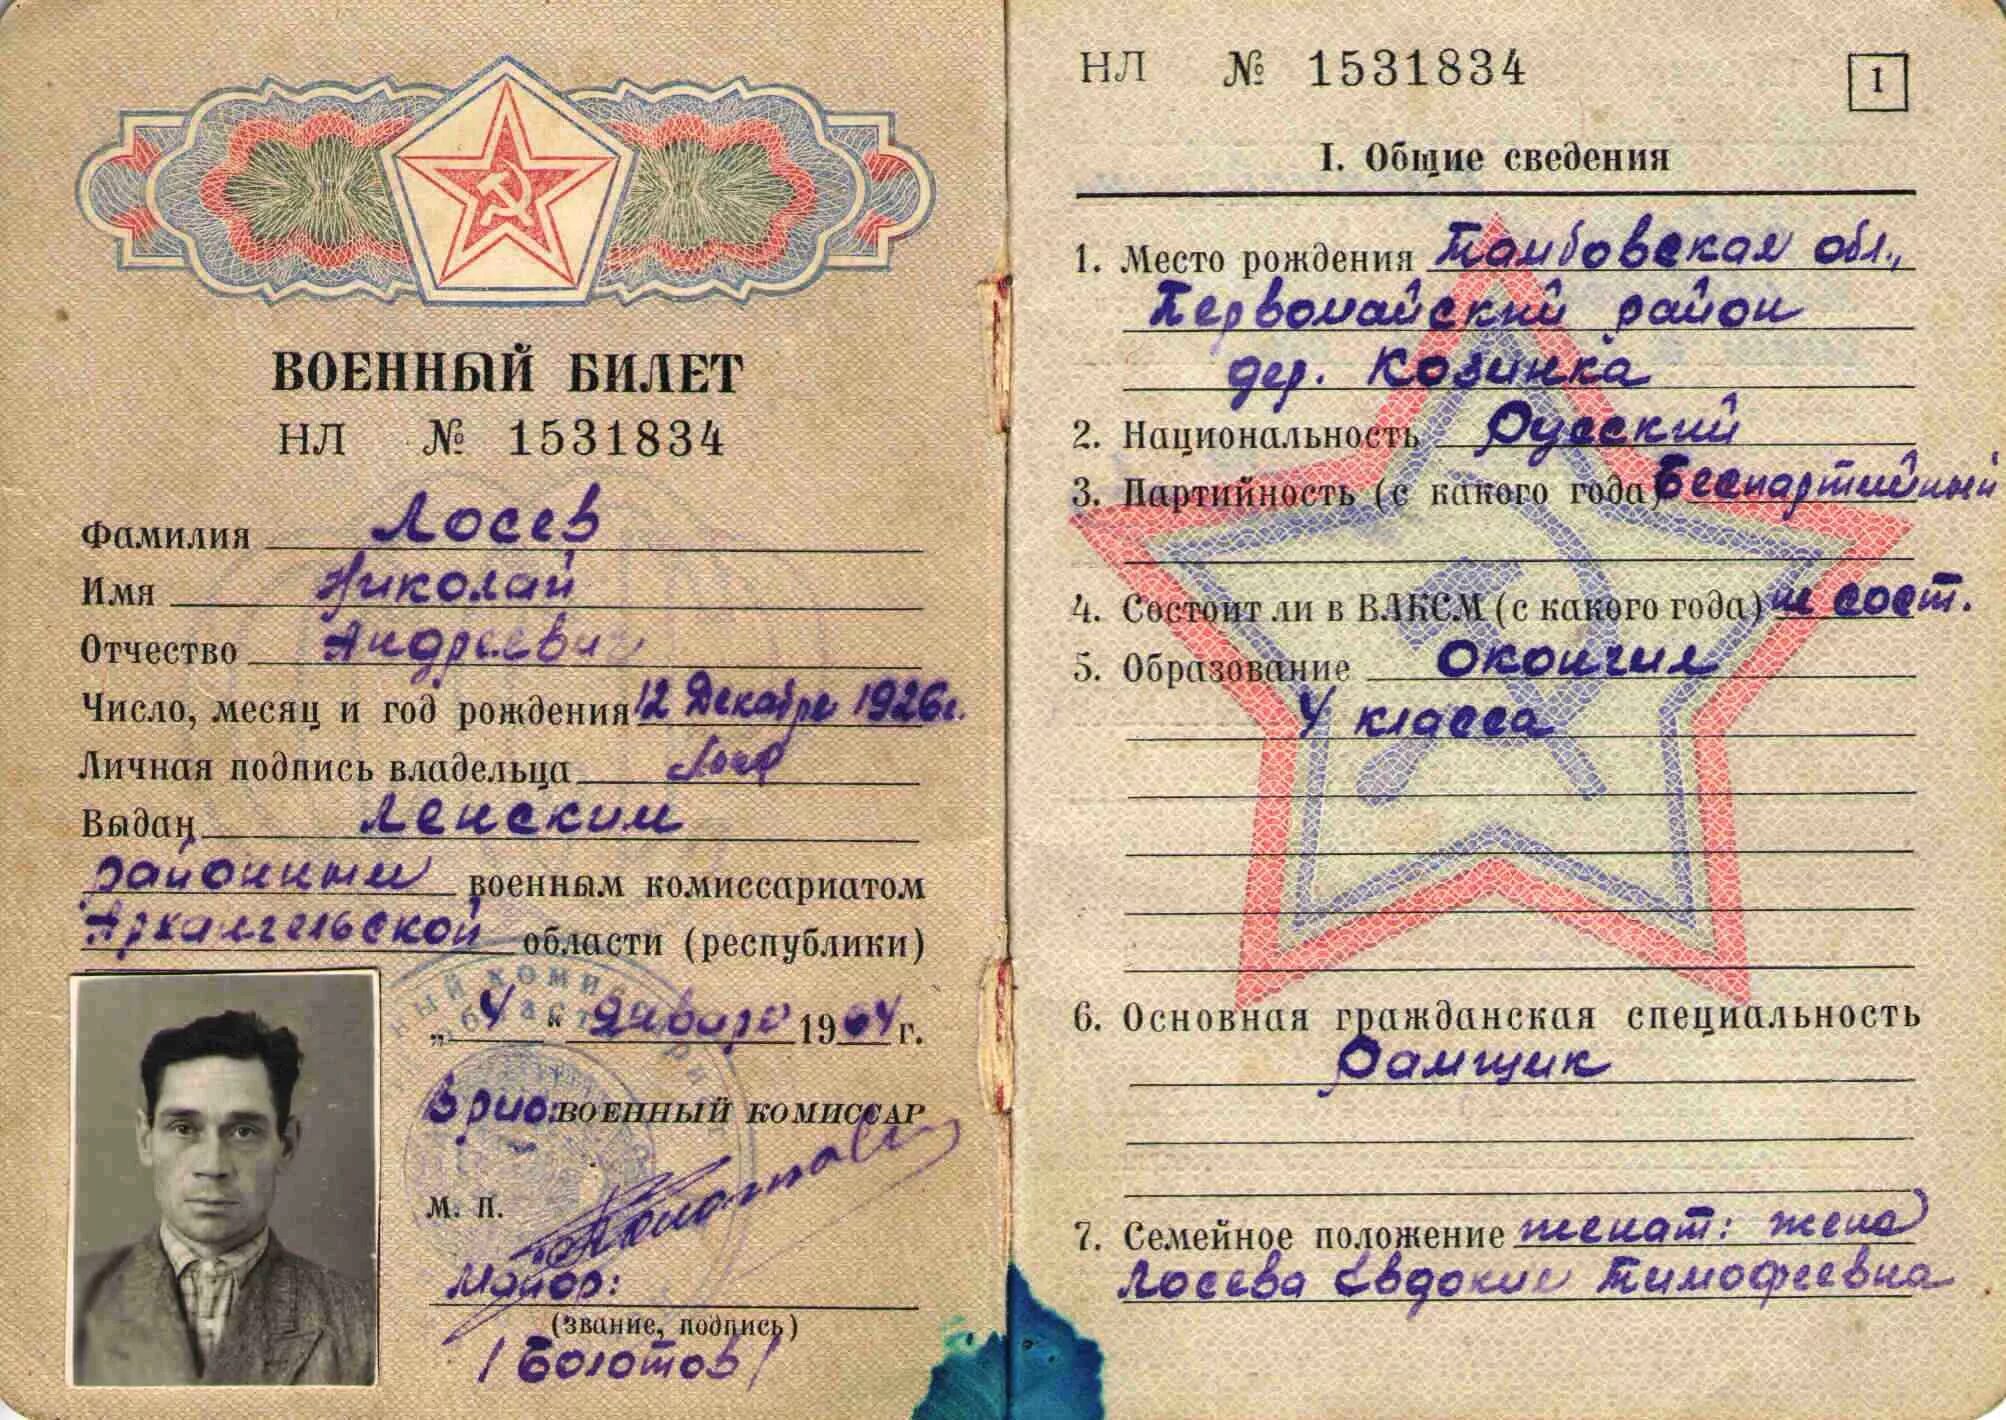 ВОЕННЫЙ БИЛЕТ
НЛ № 1531834
Фамилия Лосев
Имя Николай
Отчество Андреевич
Число, месяц и год рождения 12 Декабре 1926г.
Личная подпись владельца Лосев
Выдан Ленским
районным военным комиссариатом
Архангельской области (республики)
„4“ января 1964 г.
Врио: ВОЕННЫЙ КОМИССАР
М. П.
Майор:
(звание, подпись)
/Болотов/
НЛ № 1531834
1
I. Общие сведения
1. Место рождения Тамбовская обл.,
Первомайский район
дер. Козинка
2. Национальность Русский
3. Партийность (с какого года) Беспартийный
4. Состоит ли в ВЛКСМ (с какого года) не сост.
5. Образование Окончил
4 класса
6. Основная гражданская специальность
Рамщик
7. Семейное положение женат: жена
Лосева Евдокие Тимофеевна